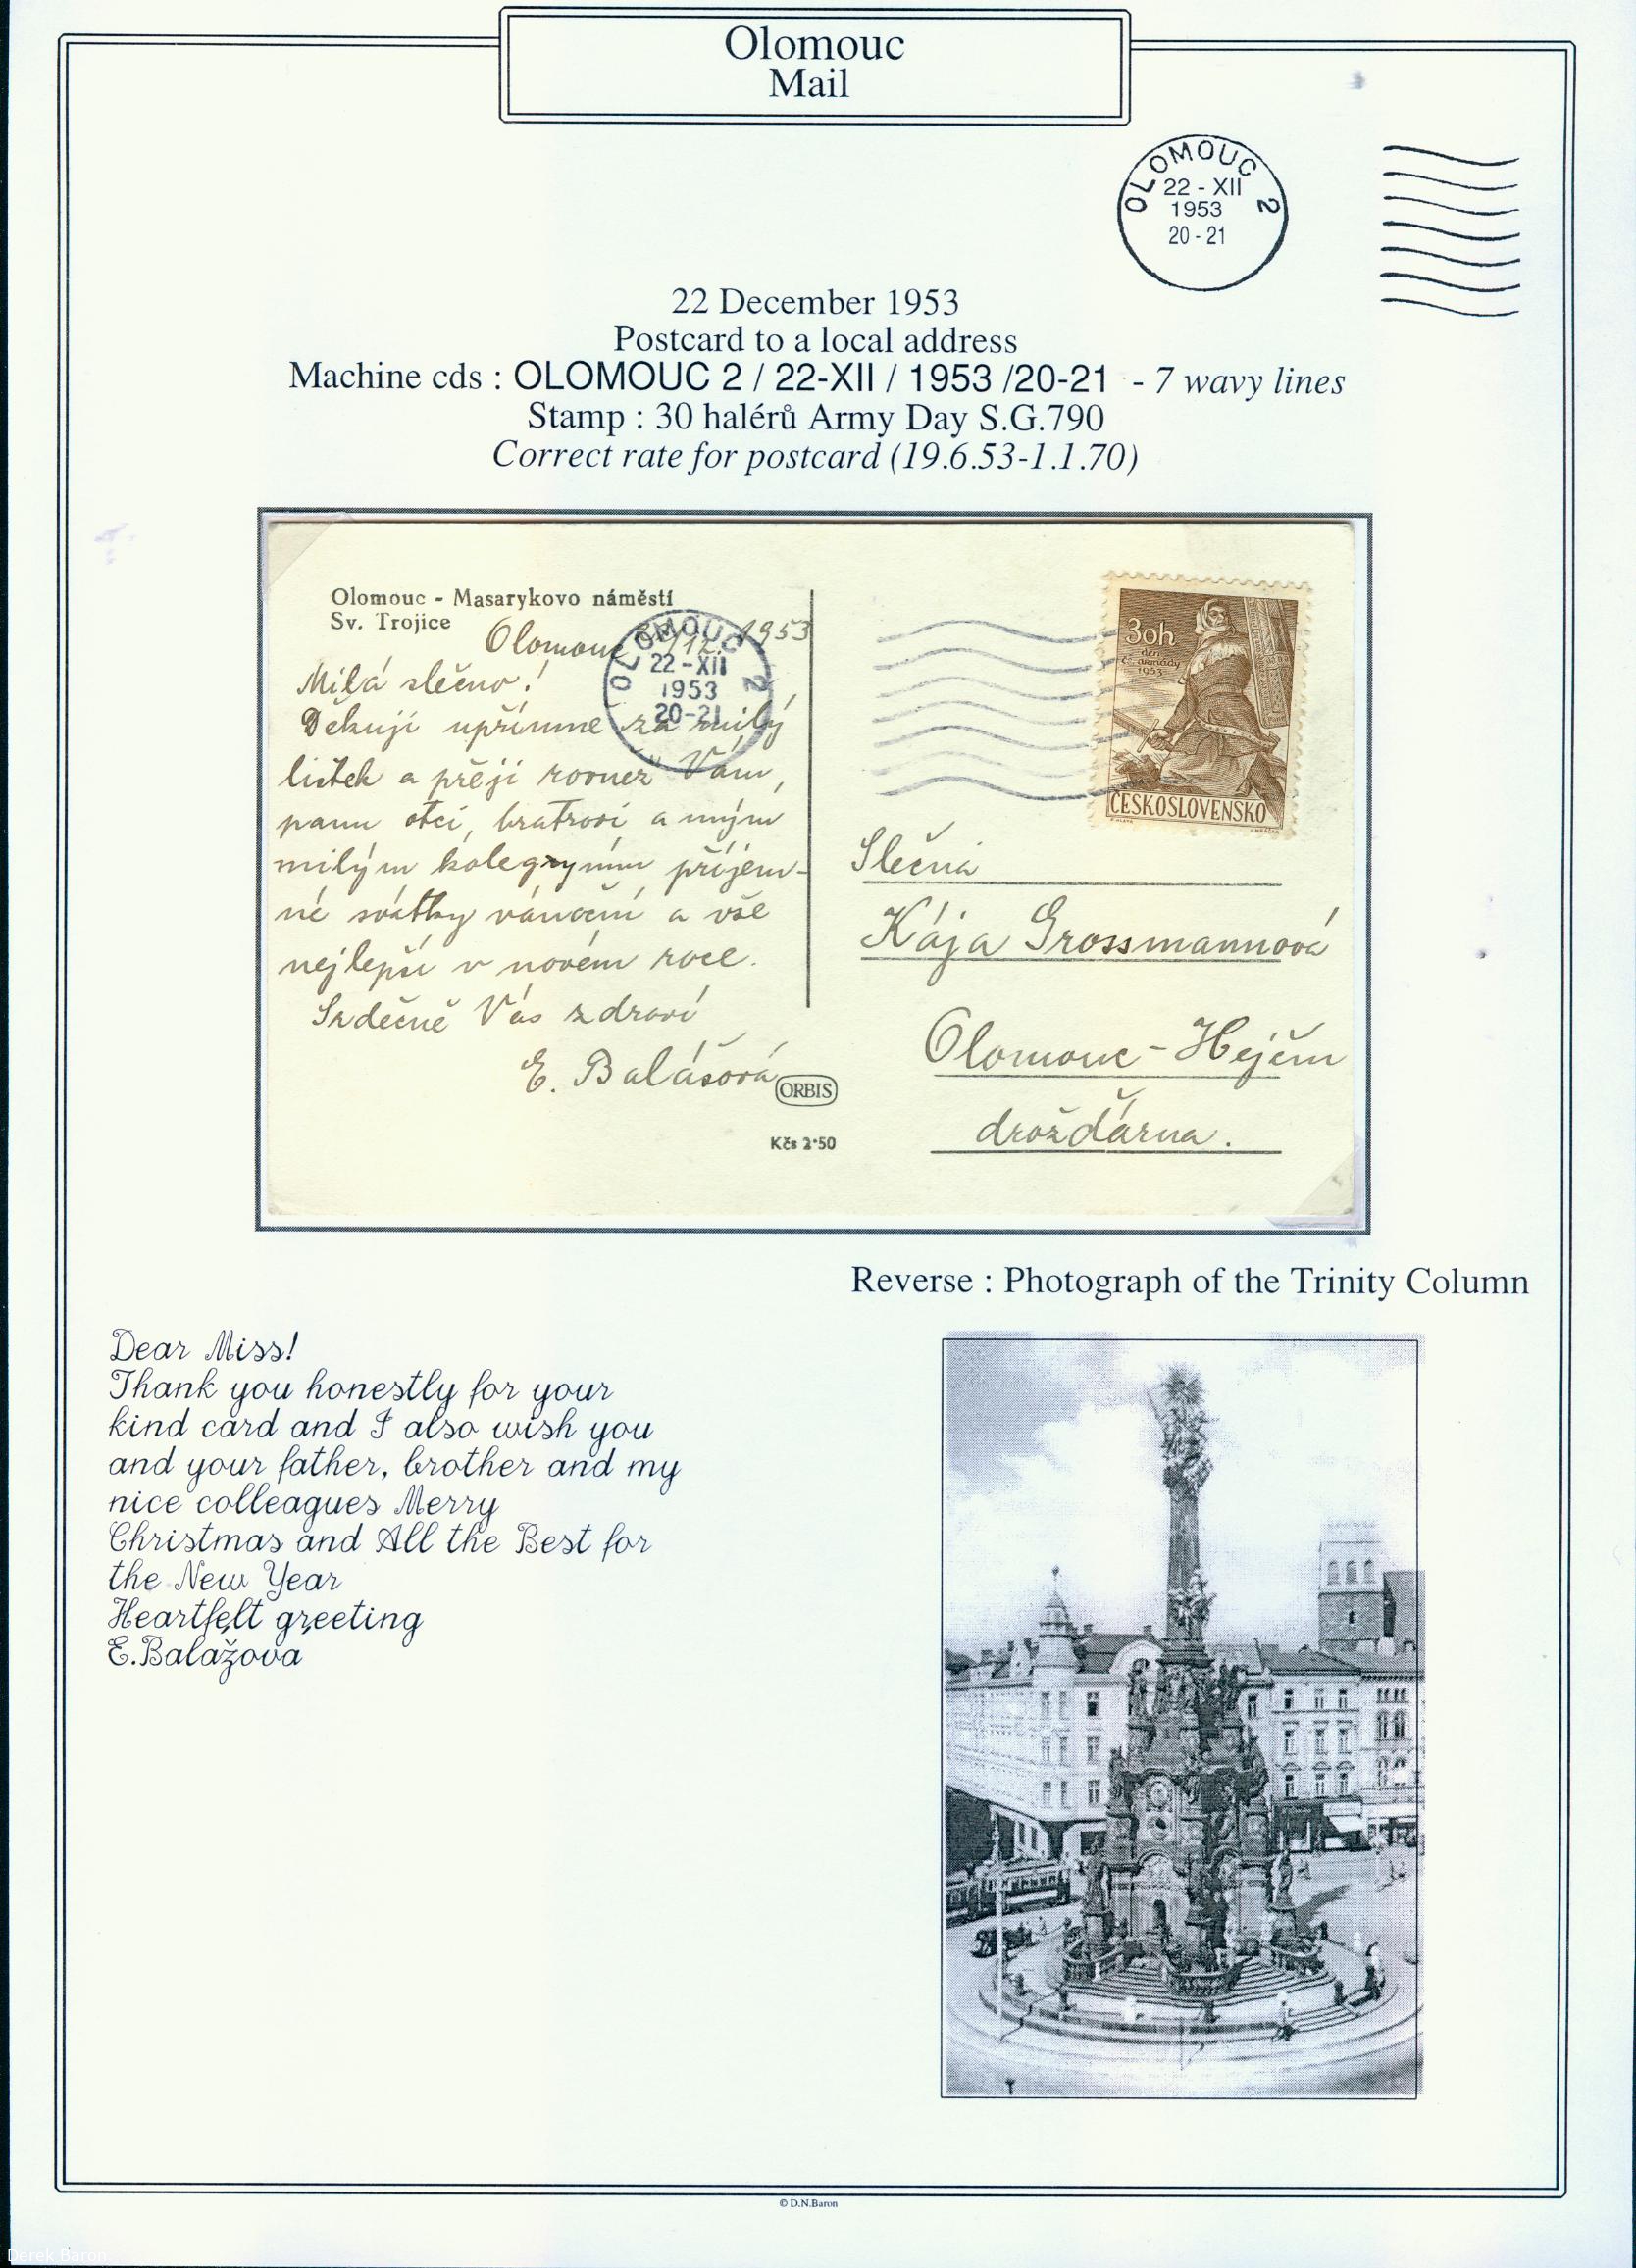 Olomouc
Mail
OLOMOUC 2
22 - XII
1953
20 - 21
22 December 1953
Postcard to a local address
Machine cds : OLOMOUC 2 / 22-XII / 1953 /20-21 - 7 wavy lines
Stamp : 30 halérů Army Day S.G.790
Correct rate for postcard (19.6.53-1.1.70)
Olomouc - Masarykovo náměstí
Sv. Trojice
Olomouc 1953
OLOMOUC 2
22-XII
1953
20-21
Milá slečno!
Děkuji upřímne za milý
lístek a přeji rovnež Vám,
panu otci, bratrovi a mým
milým kolegyním příjem-
né svátky vánoční a vše
nejlepší v novém roce.
Srdečně Vás zdraví
E. Balášová
ORBIS
Kčs 2·50
30h
den
čs. armády
1953
ČESKOSLOVENSKO
Slečna
Kája Grossmannová
Olomouc - Hejčín
drožďárna.
Reverse : Photograph of the Trinity Column
Dear Miss!
Thank you honestly for your
kind card and I also wish you
and your father, brother and my
nice colleagues Merry
Christmas and All the Best for
the New Year
Heartfelt greeting
E.Balažova
© D.N.Baron
Derek Baron